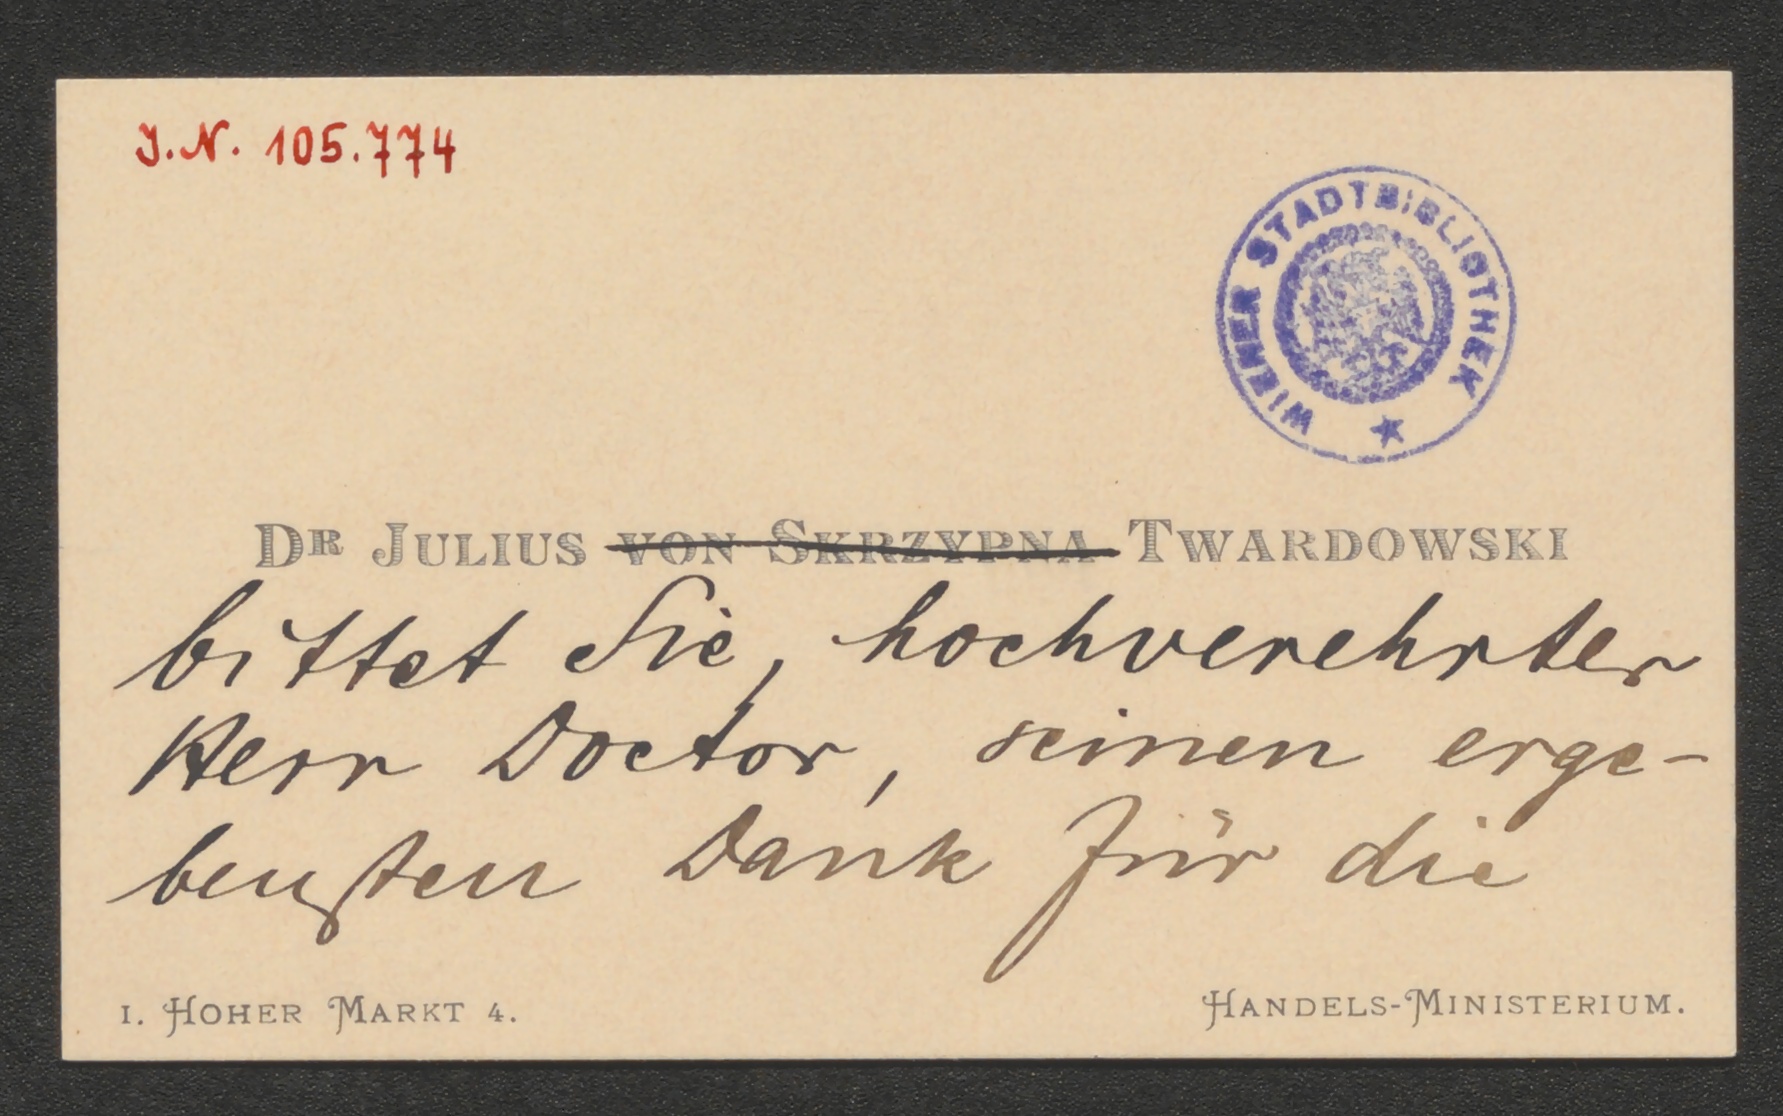 J.N. 105.774
WIENER STADTBIBLIOTHEK
DR JULIUS VON SKRZYPNA TWARDOWSKI
bittet Sie, hochverehrter
Herr Doctor, seinen erge-
bensten Dank für die
I. HOHER MARKT 4.
HANDELS-MINISTERIUM.